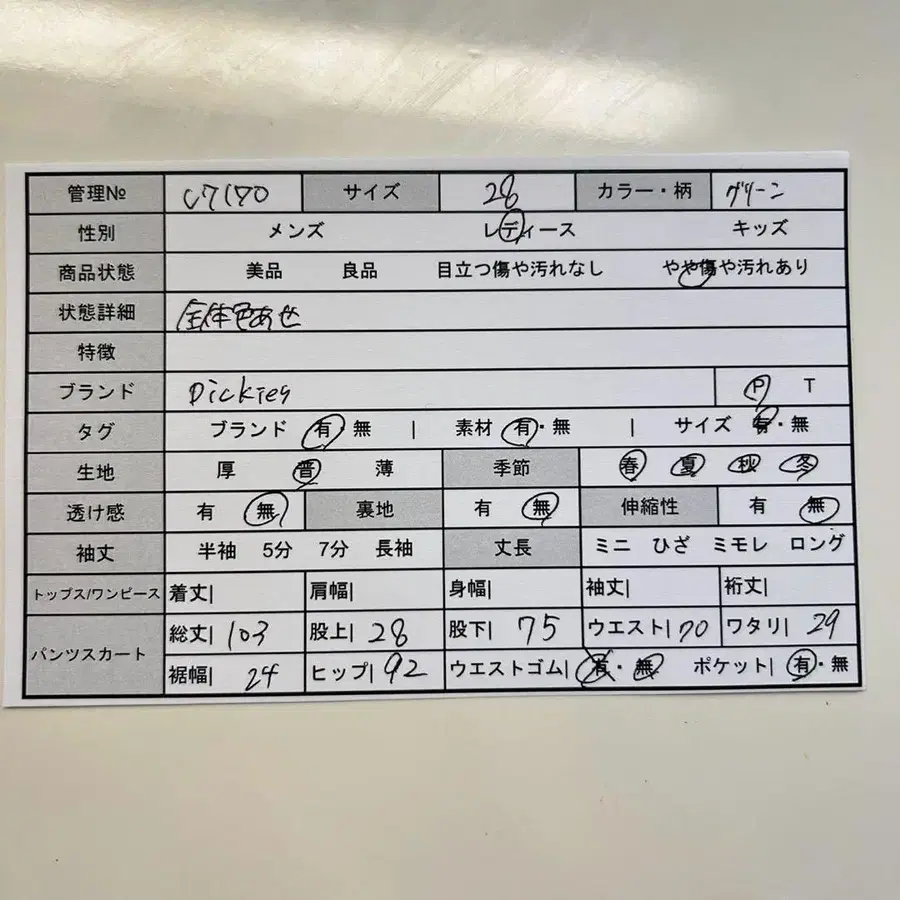 管理№ C7170 サイズ 28 カラー・柄 グリーン
性別 メンズ レディース キッズ
商品状態 美品 良品 目立つ傷や汚れなし やや傷や汚れあり
状態詳細 全体色あせ
特徴
ブランド Dickies P T
タグ ブランド 有 無 | 素材 有・無 | サイズ 有・無
生地 厚 普 薄 季節 春 夏 秋 冬
透け感 有 無 裏地 有 無 伸縮性 有 無
袖丈 半袖 5分 7分 長袖 丈長 ミニ ひざ ミモレ ロング
トップス/ワンピース 着丈| 肩幅| 身幅| 袖丈| 裄丈|
パンツスカート 総丈| 103 股上| 28 股下| 75 ウエスト| 70 ワタリ| 29
裾幅| 24 ヒップ| 92 ウエストゴム| 有・無 ポケット| 有・無